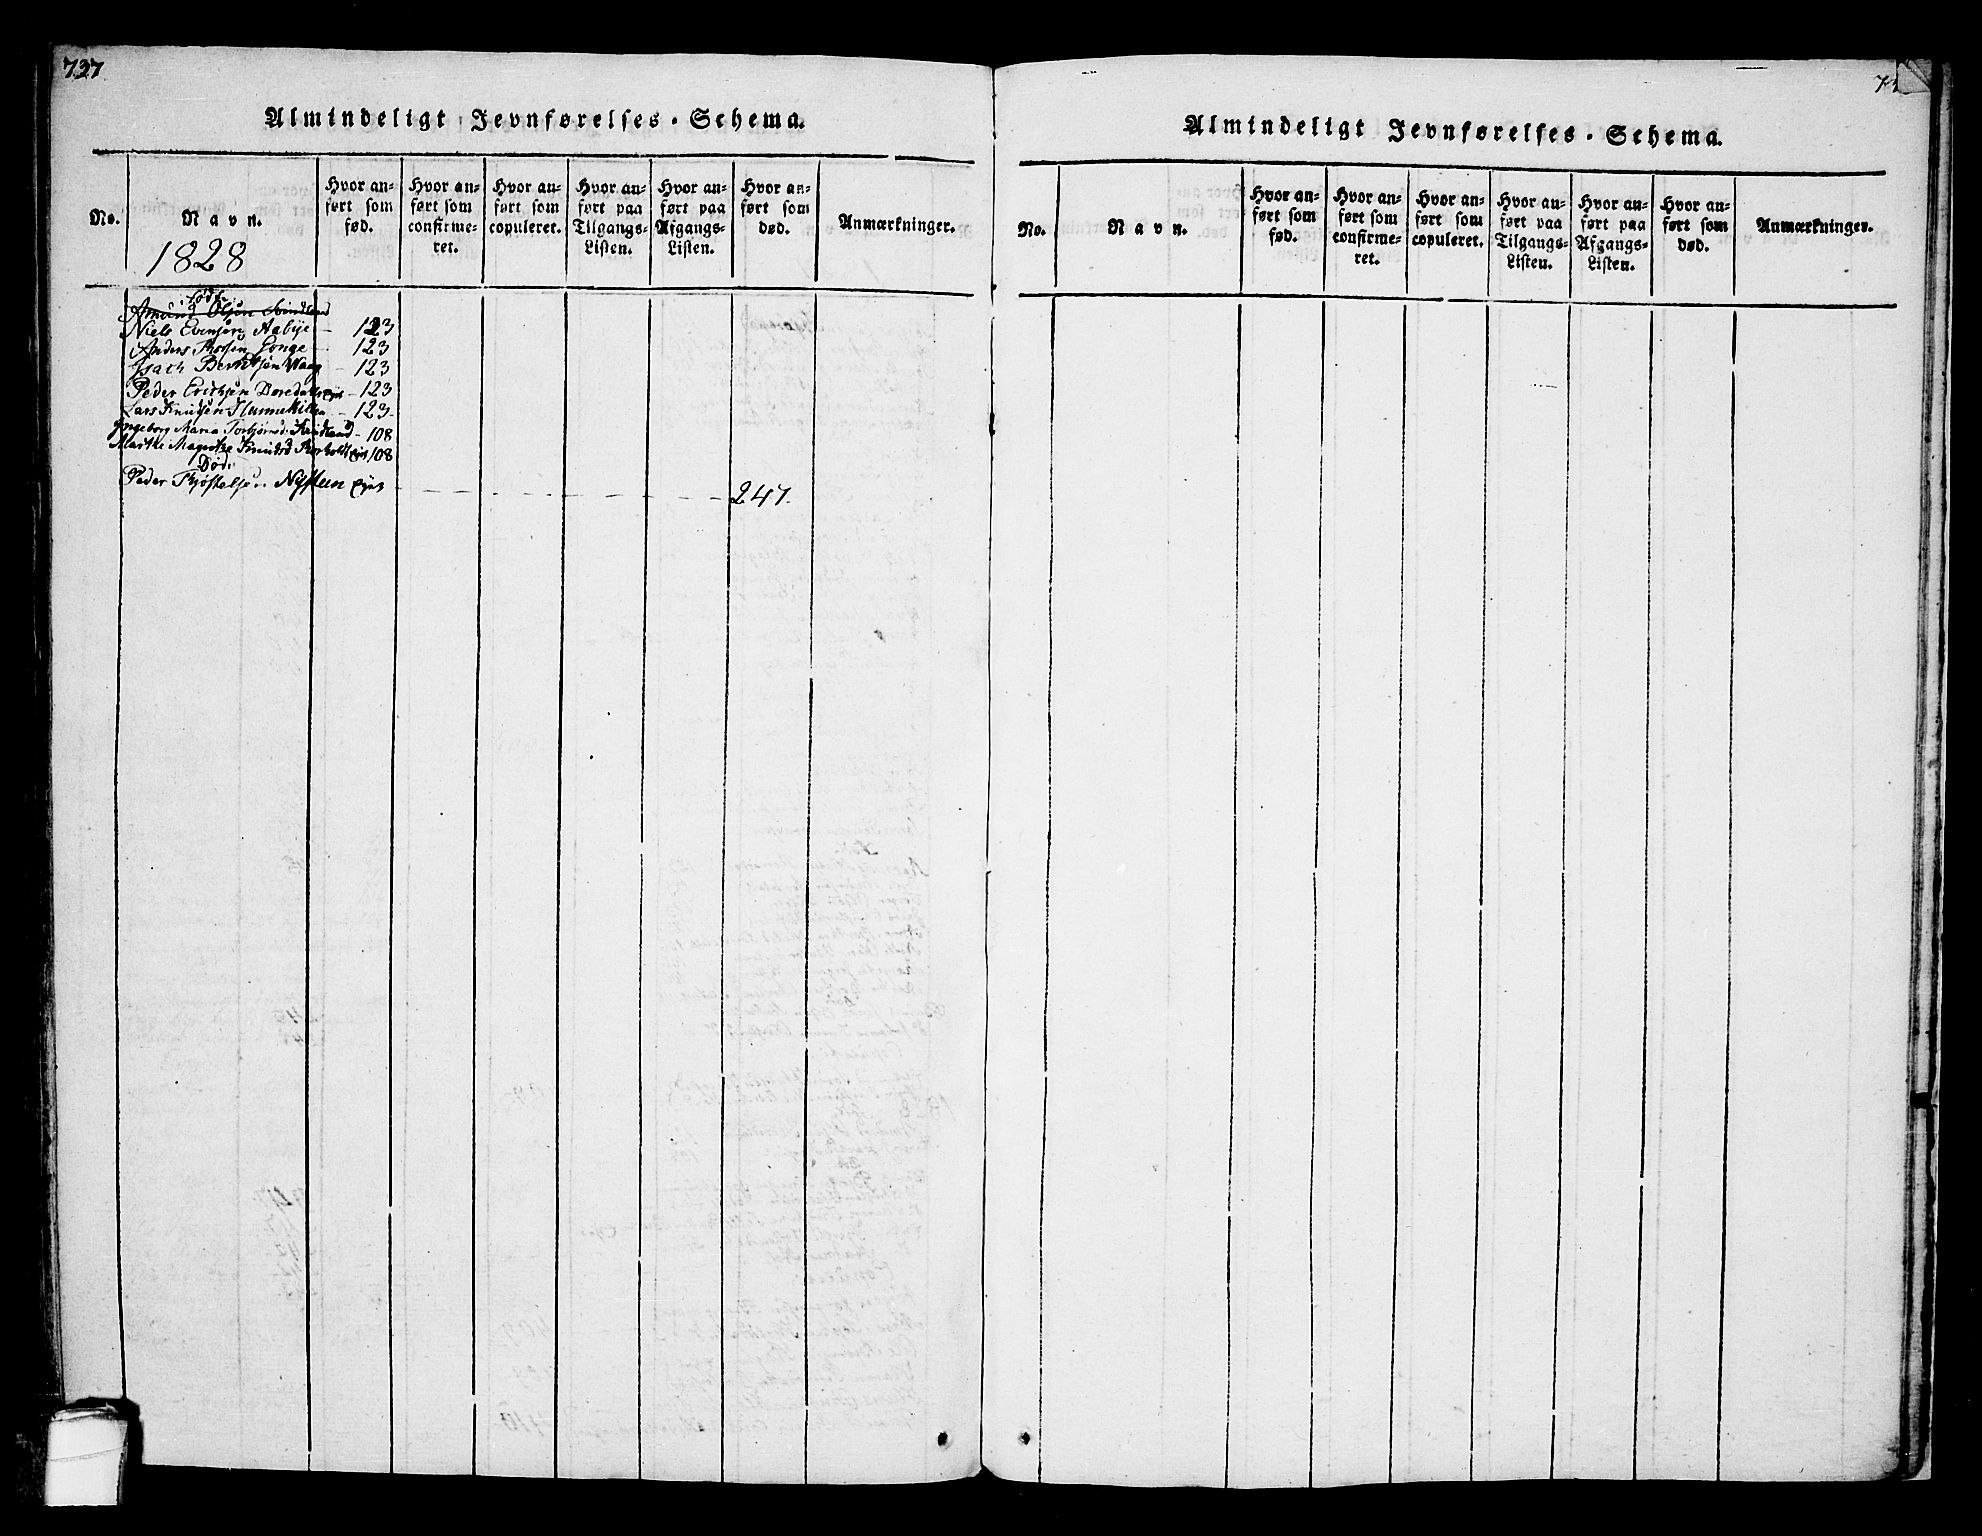 737
Almindeligt Jevnførelses-Schema.
No.
Navn.
Hvor anført som fød.
Hvor anført som confirmeret.
Hvor anført som copuleret.
Hvor anført paa Tilgangs-Listen.
Hvor anført paa Afgangs-Listen.
Hvor anført som død.
Anmærkninger.
1828
Fødte
Amund Olsen
Niels Evensen Aabye - 123
Anders Thosen Songe - 123
Isach Berntsen Waag - 123
Peder Erichsen Døredalseyet - 123
Lars Knudsen Hunnekillen - 123
Ingeborg Maria Torbjørnsd. - 108
Marthe Magrethe Knudsd 108
Død:
Peder Nystuen Eyet 247.
Almindeligt Jevnførelses-Schema.
No.
Navn.
Hvor anført som fød.
Hvor anført som confirmeret.
Hvor anført som copuleret.
Hvor anført paa Tilgangs-Listen.
Hvor anført paa Afgangs-Listen.
Hvor anført som død.
Anmærkninger.